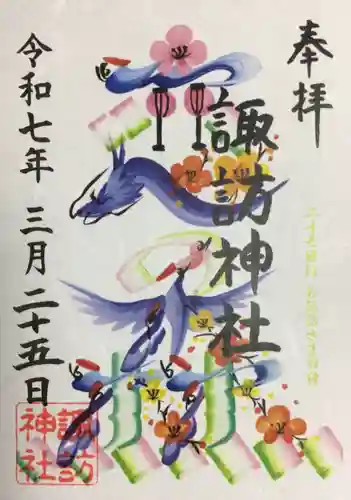 奉拝
諏訪神社
令和七年三月二十五日
諏訪
神社